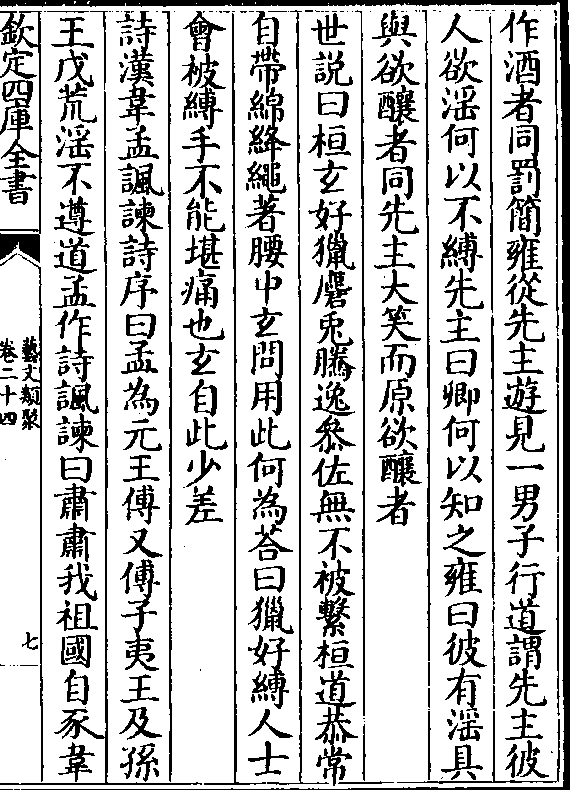 作酒者同罰簡雍從先主遊見一男子行道謂先主彼
人欲淫何以不縛先主曰卿何以知之雍曰彼有淫具
與欲釀者同先主大笑而原欲釀者
世說曰桓玄好獵麏兎騰逸叅佐無不被繫桓道恭常
自帶綿絳繩著腰中玄問用此何為荅曰獵好縛人士
會被縛手不能堪痛也玄自此少差
詩漢韋孟諷諫詩序曰孟為元王傅又傅子夷王及孫
王戊荒淫不遵道孟作詩諷諫曰肅肅我祖國自豕韋
欽定四庫全書
藝文類聚
卷二十四
七